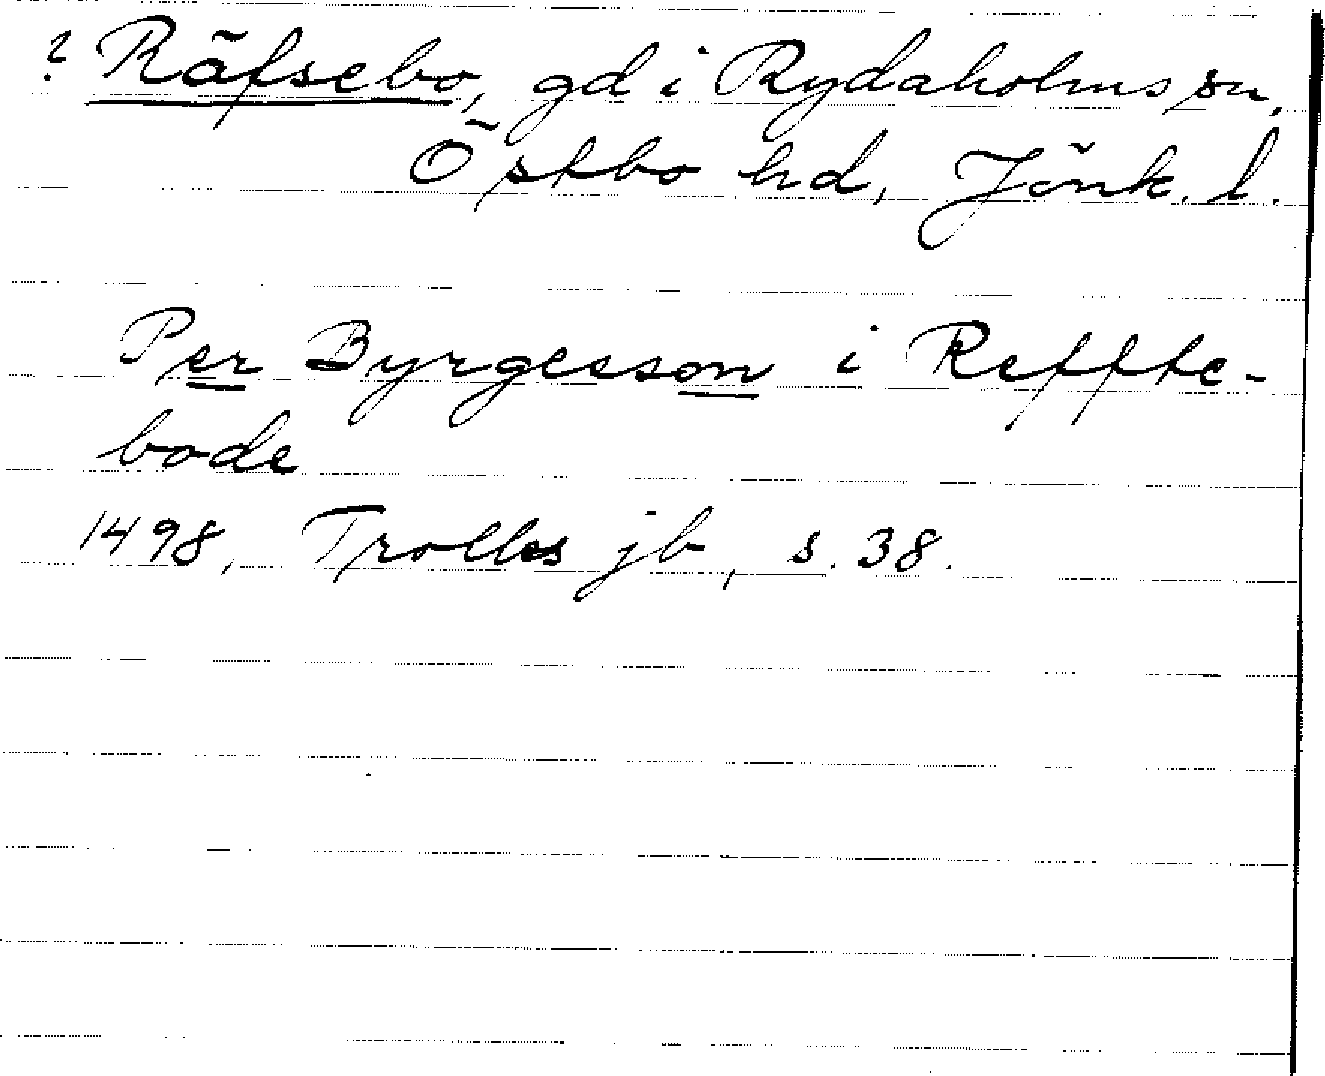 ? Räfsebo, gd i Rydaholms sn,
Östbo hd, Jönk. l.
Per Byrgesson i Reffte-
bode
1498, Trolles jb, s. 38.